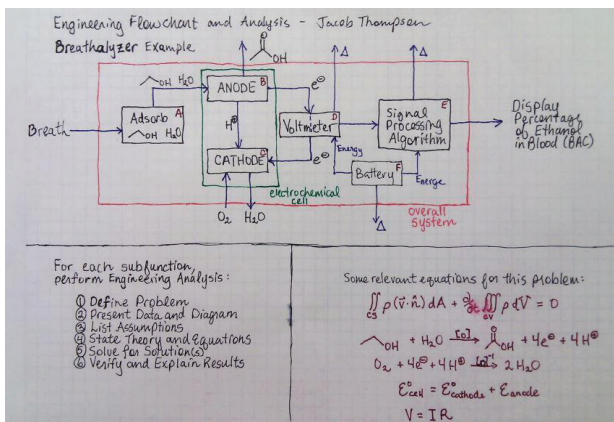 Engineering Flowchart and Analysis - Jacob Thompson
Breathalyzer Example
OH
Δ
Δ
OH H₂O
ANODE B
e⊖
Adsorb A
OH H₂O
Breath
H⊕
Voltmeter D
Signal Processing Algorithm E
Display
Percentage
of Ethanol
in Blood (BAC)
CATHODE C
e⊖
Energy
Battery F
Energe
electrochemical
cell
O₂
H₂O
Δ
overall
system
For each subfunction,
perform Engineering Analysis:
① Define Problem
② Present Data and Diagram
③ List Assumptions
④ State Theory and Equations
⑤ Solve for Solution(s)
⑥ Verify and Explain Results
Some relevant equations for this problem:
∬cs ρ(v⃗·n̂) dA + ∂/∂t ∭cv ρ dV = 0
OH + H₂O [O]→ OH + 4e⊖ + 4H⊕
O₂ + 4e⊖ + 4H⊕ [O]⁻¹→ 2H₂O
Ɛ°cell = Ɛ°cathode + Ɛanode
V = IR